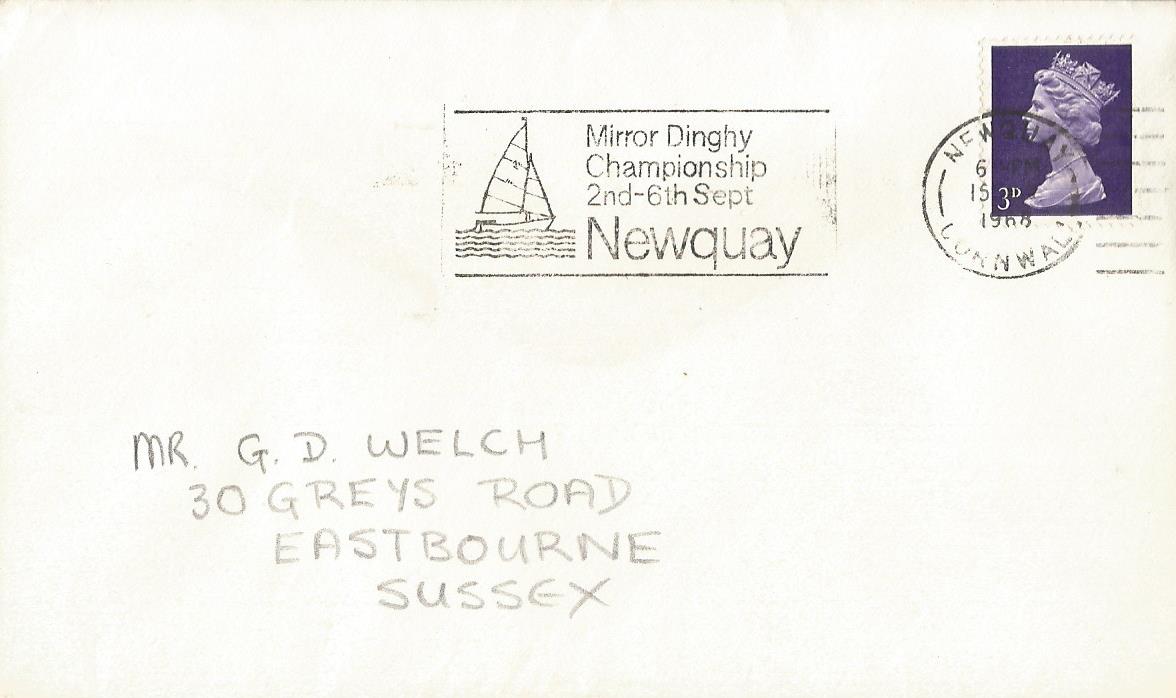 Mirror Dinghy
Championship
2nd-6th Sept
Newquay
NEWQUAY
6 PM
1968
CORNWALL
3D
MR. G. D. WELCH
30 GREYS ROAD
EASTBOURNE
SUSSEX